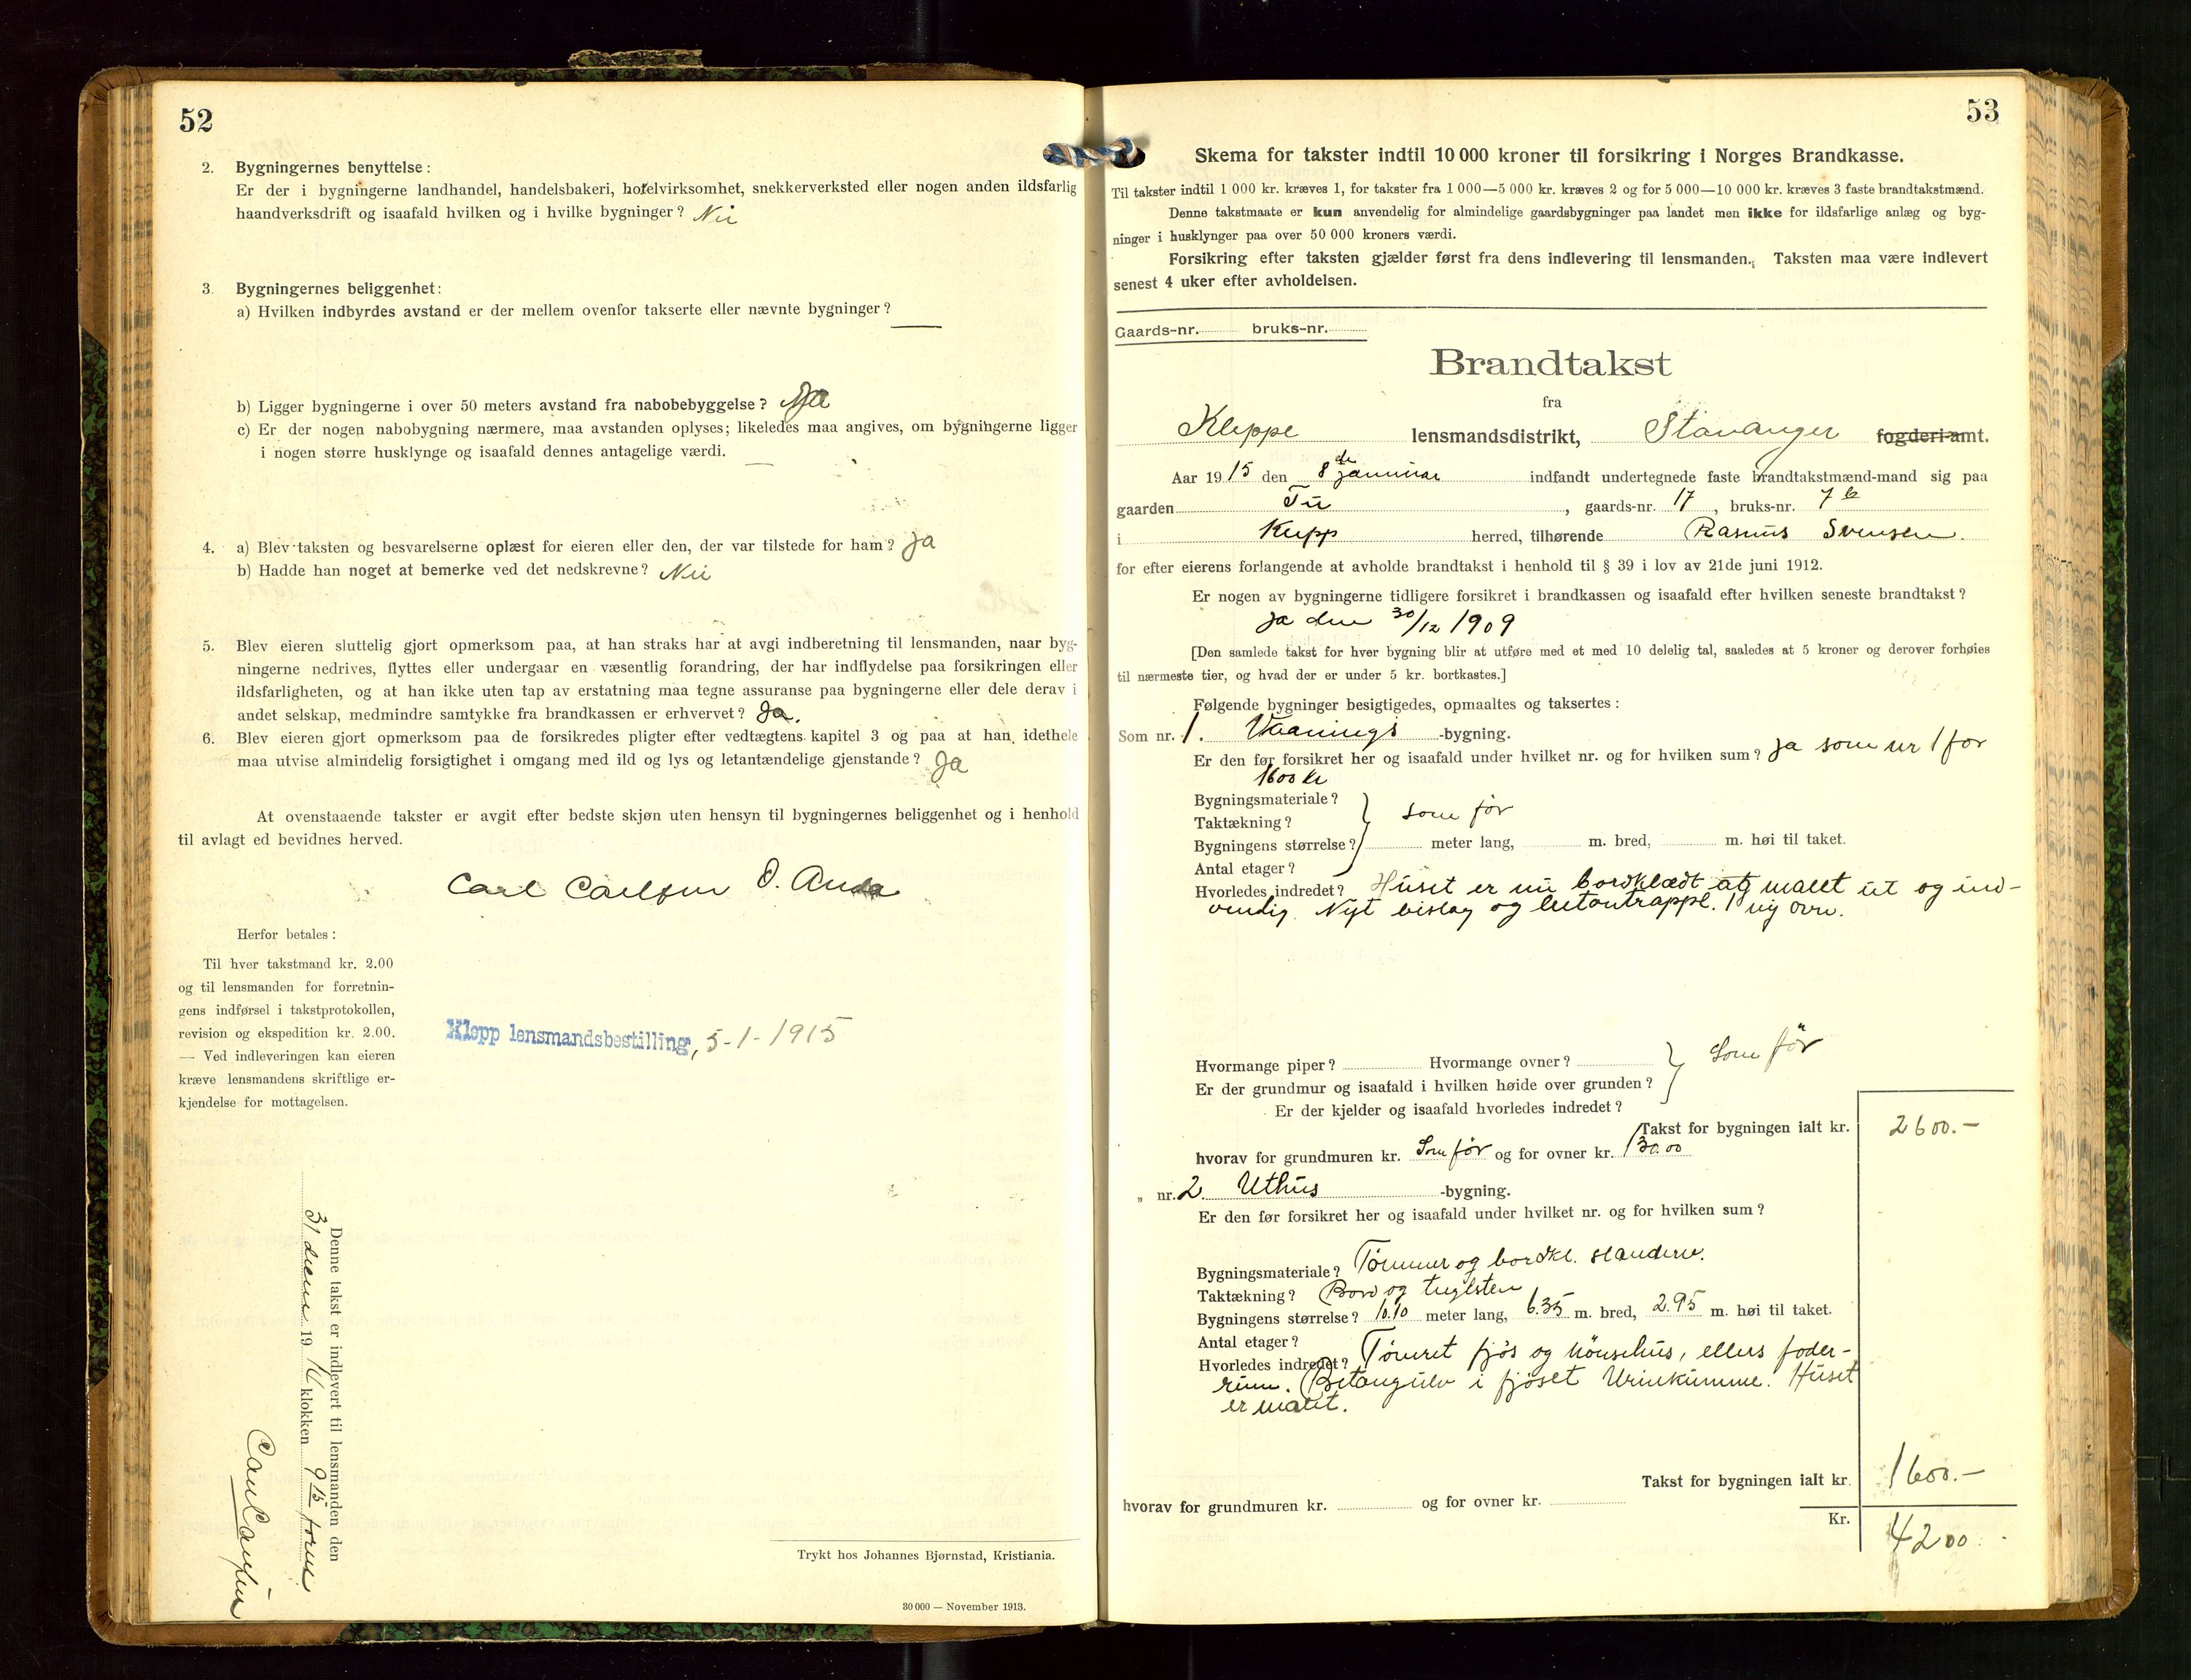 52
2. Bygningernes benyttelse:
Er der i bygningerne landhandel, handelsbakeri, hotelvirksomhet, snekkerverksted eller nogen anden ildsfarlig
haandverksdrift og isaafald hvilken og i hvilke bygninger? Nei
3. Bygningernes beliggenhet:
a) Hvilken indbyrdes avstand er der mellem ovenfor takserte eller nævnte bygninger? —
b) Ligger bygningerne i over 50 meters avstand fra nabobebyggelse? Ja
c) Er der nogen nabobygning nærmere, maa avstanden oplyses; likeledes maa angives, om bygningerne ligger
i nogen større husklynge og isaafald dennes antagelige værdi. —
4. a) Blev taksten og besvarelserne oplæst for eieren eller den, der var tilstede for ham? Ja
b) Hadde han noget at bemerke ved det nedskrevne? Nei
5. Blev eieren sluttelig gjort opmerksom paa, at han straks har at avgi indberetning til lensmanden, naar byg-
ningerne nedrives, flyttes eller undergaar en væsentlig forandring, der har indflydelse paa forsikringen eller
ildsfarligheten, og at han ikke uten tap av erstatning maa tegne assuranse paa bygningerne eller dele derav i
andet selskap, medmindre samtykke fra brandkassen er erhvervet? Ja.
6. Blev eieren gjort opmerksom paa de forsikredes pligter efter vedtægtens kapitel 3 og paa at han idethele
maa utvise almindelig forsigtighet i omgang med ild og lys og letantændelige gjenstande? Ja
At ovenstaaende takster er avgit efter bedste skjøn uten hensyn til bygningernes beliggenhet og i henhold
til avlagt ed bevidnes herved.
Carl Carlsen O. Anda
Herfor betales:
Til hver takstmand kr. 2.00
og til lensmanden for forretnin-
gens indførsel i takstprotokollen,
revision og ekspedition kr. 2.00.
— Ved indleveringen kan eieren
kræve lensmandens skriftlige er-
kjendelse for mottagelsen.
Klepp lensmandsbestilling, 5-1-1915
Denne takst er indlevert til lensmanden den
31 decbr 1914 klokken 9 15 form
Trykt hos Johannes Bjørnstad, Kristiania.
30 000 — November 1913.
53
Skema for takster indtil 10 000 kroner til forsikring i Norges Brandkasse.
Til takster indtil 1 000 kr. kræves 1, for takster fra 1 000—5 000 kr. kræves 2 og for 5 000—10 000 kr. kræves 3 faste brandtakstmænd.
Denne takstmaate er kun anvendelig for almindelige gaardsbygninger paa landet men ikke for ildsfarlige anlæg og byg-
ninger i husklynger paa over 50 000 kroners værdi.
Forsikring efter taksten gjælder først fra dens indlevering til lensmanden. Taksten maa være indlevert
senest 4 uker efter avholdelsen.
Gaards-nr. bruks-nr.
Brandtakst
fra
Kleppe lensmandsdistrikt, Stavanger fogderi-amt.
Aar 1915 den 8de januar indfandt undertegnede faste brandtakstmænd-mand sig paa
gaarden Tu, gaards-nr. 17, bruks-nr. 7 b
i Klepp herred, tilhørende Rasmus Svensen.
for efter eierens forlangende at avholde brandtakst i henhold til § 39 i lov av 21de juni 1912.
Er nogen av bygningerne tidligere forsikret i brandkassen og isaafald efter hvilken seneste brandtakst?
Ja den 30/12 1909
[Den samlede takst for hver bygning blir at utføre med et med 10 delelig tal, saaledes at 5 kroner og derover forhøies
til nærmeste tier, og hvad der er under 5 kr. bortkastes.]
Følgende bygninger besigtigedes, opmaaltes og taksertes:
Som nr. 1. Vaanings-bygning.
Er den før forsikret her og isaafald under hvilket nr. og for hvilken sum? Ja som nr 1 for
1600 kr
Bygningsmateriale?
Taktækning? som før
Bygningens størrelse? meter lang, m. bred, m. høi til taket.
Antal etager?
Hvorledes indredet? Huset er nu bordklædt og malet ut og ind-
vendig. Nyt bislag og betontrappe. 1 ny ovn.
Hvormange piper? Hvormange ovner? Som før
Er der grundmur og isaafald i hvilken høide over grunden?
Er der kjelder og isaafald hvorledes indredet?
Takst for bygningen ialt kr. 2600.—
hvorav for grundmuren kr. Som før og for ovner kr. 130.00
„ nr. 2. Uthus -bygning.
Er den før forsikret her og isaafald under hvilket nr. og for hvilken sum?
Bygningsmateriale? Tømmer og bordkl. standerv.
Taktækning? Bord og teglsten
Bygningens størrelse? 10.10 meter lang, 6.35 m. bred, 2.95 m. høi til taket.
Antal etager?
Hvorledes indredet? Tømret fjøs og hönsehus, ellers foder-
rum. Betongulv i fjøset Urinkumme. Huset
er malet.
Takst for bygningen ialt kr. 1600.—
hvorav for grundmuren kr. og for ovner kr.
Kr. 4200.